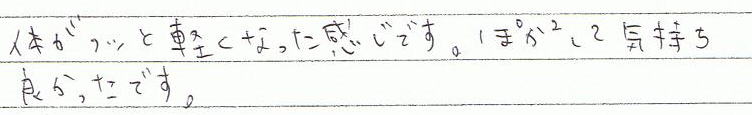 体がフッと軽くなった感じです。ぽか²して気持ち
良かったです。